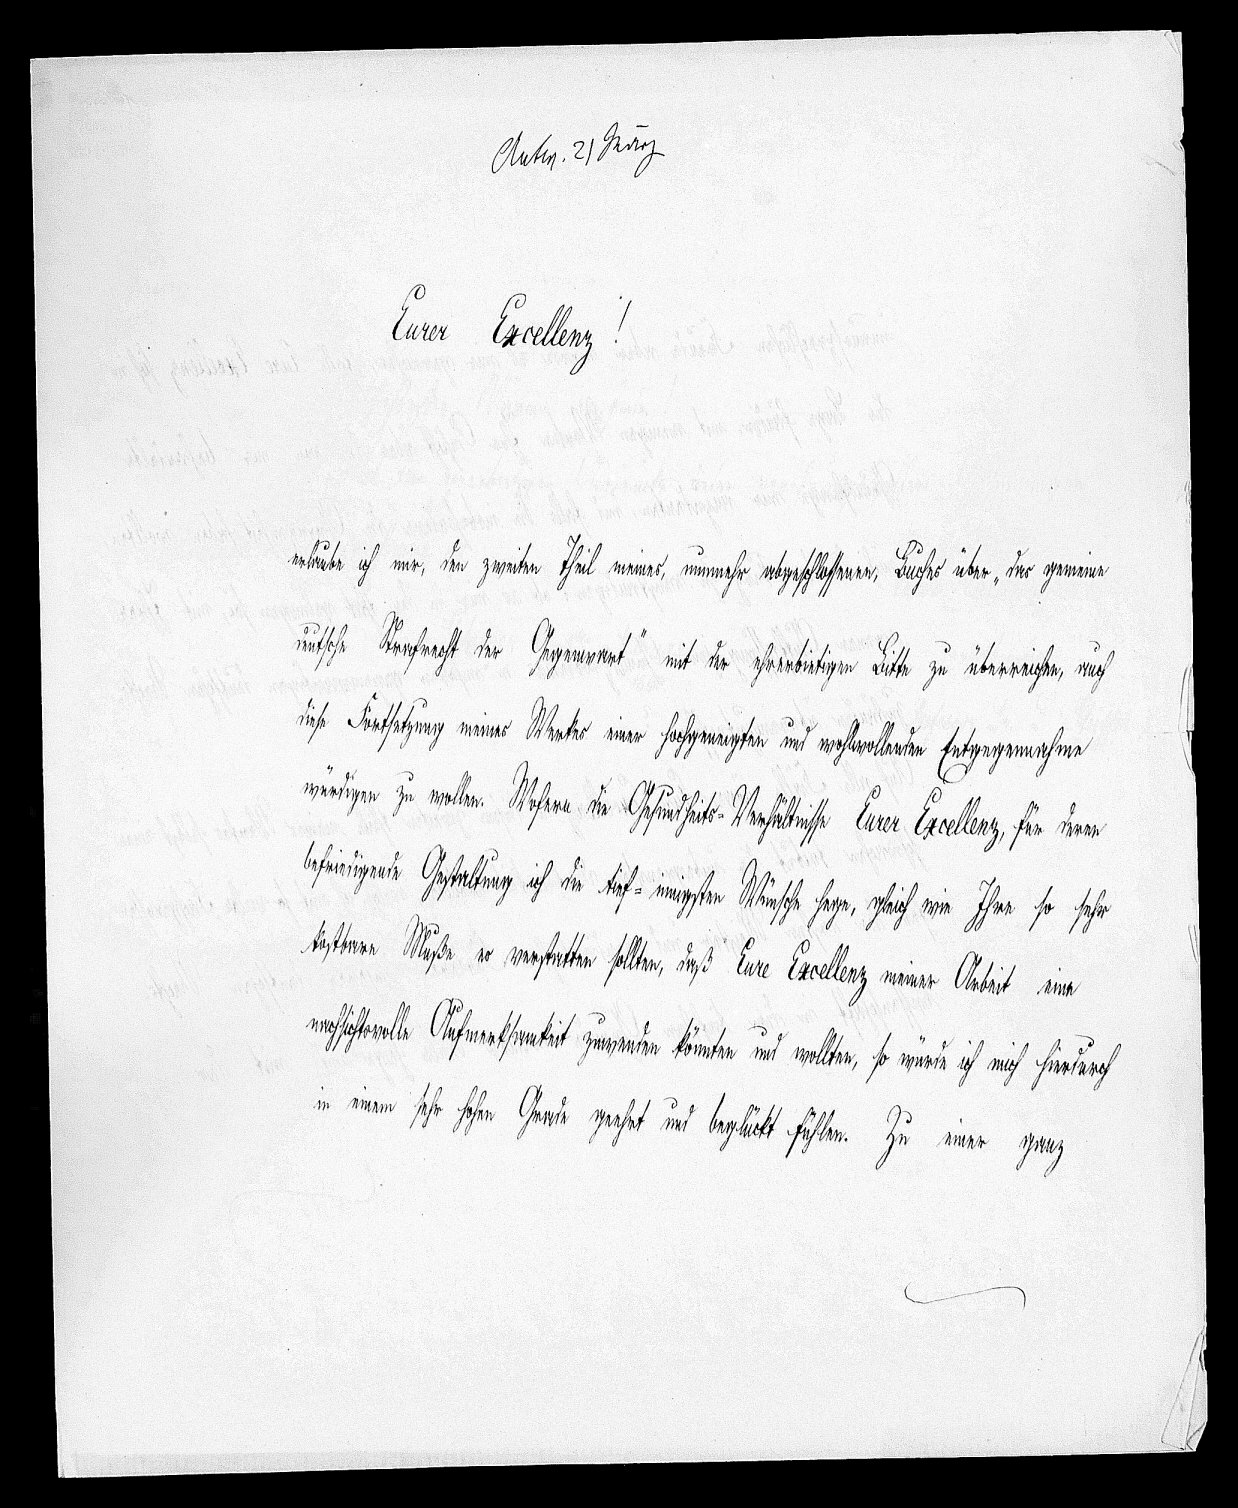 Antw. 21 März
Eurer Excellenz!
erlaube ich mir, den zweiten Theil meines, nunmehr abgeschlossenen, Buches über „das gemeine
deutsche Strafrecht der Gegenwart" mit der ehrerbietigen Bitte zu überreichen, auch
diese Fortsetzung meines Werkes einer hochgeneigten und wohlwollenden Entgegennahme
würdigen zu wollen. Wofern die Gesundheits-Verhältnisse Eurer Excellenz, für deren
befriedigende Gestaltung ich die tief-innigsten Wünsche hege, gleich wie Ihre so sehr
kostbare Muße es verstatten sollten, daß Eure Excellenz meiner Arbeit eine
nachsichtsvolle Aufmerksamkeit zuwenden könnten und wollten, so würde ich mich hierdurch
in einem sehr hohen Grade geehrt und beglückt fühlen. Zu einer ganz